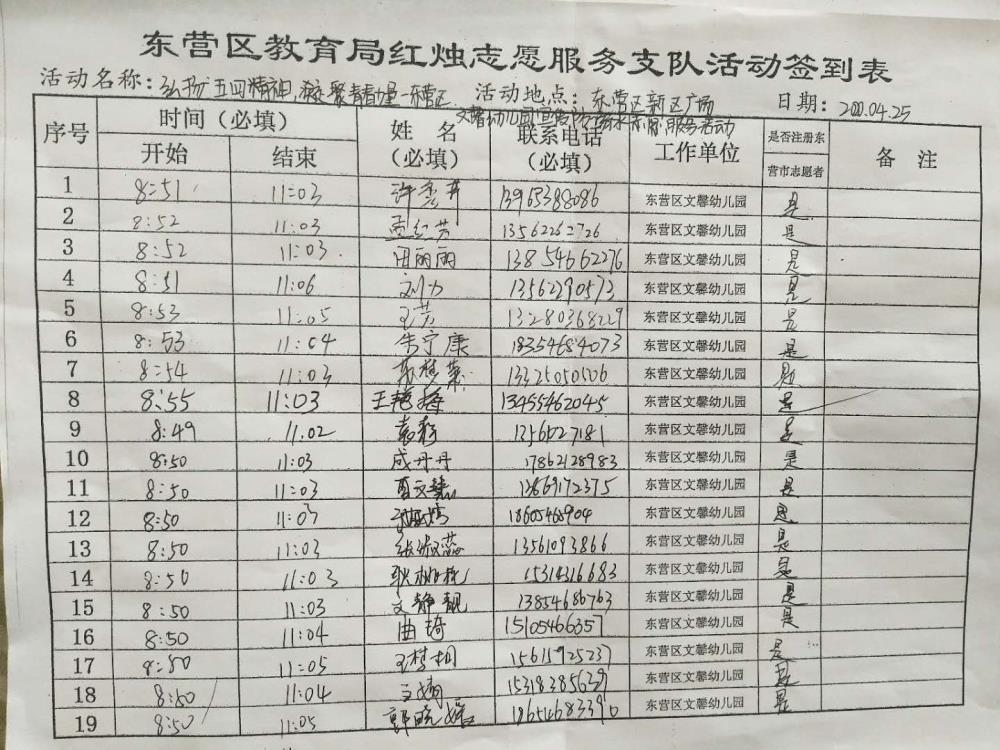 东营区教育局红烛志愿服务支队活动签到表
活动名称：弘扬五四精神，凝聚青春力量—东营区 活动地点：东营区新区广场 日期：2020.04.25
文馨幼儿园宣传防溺水志愿服务活动
序号 时间（必填） 姓 名（必填） 联系电话（必填） 工作单位 是否注册东营市志愿者 备 注
开始 结束
1 8:51 11:03 13965388086 东营区文馨幼儿园 是
2 8:52 11:03 13562262726 东营区文馨幼儿园 是
3 8:52 11:03 田丽丽 13854662276 东营区文馨幼儿园 是
4 8:51 11:06 刘力 13562290573 东营区文馨幼儿园 是
5 8:53 11:05 王芳 13280368229 东营区文馨幼儿园 是
6 8:53 11:04 朱宁康 18354684073 东营区文馨幼儿园 是
7 8:54 11:03 13325050506 东营区文馨幼儿园 是
8 8:55 11:03 王艳梅 13455462045 东营区文馨幼儿园 是
9 8:49 11.02 袁彩 东营区文馨幼儿园 是
10 8:50 11:03 成丹丹 17862128983 东营区文馨幼儿园 是
11 8:50 11:03 13669172375 东营区文馨幼儿园 是
12 8:50 11:03 东营区文馨幼儿园 是
13 8:50 11:03 13561093866 东营区文馨幼儿园 是
14 8:50 11:03 15314316683 东营区文馨幼儿园 是
15 8:50 11:03 文静靓 13854686763 东营区文馨幼儿园 是
16 8:50 11:04 曲琦 15105466357 东营区文馨幼儿园 是
17 8:50 11:05 王梦桐 15615925237 东营区文馨幼儿园 是
18 8:50 11:04 王婧 15318385629 东营区文馨幼儿园 是
19 8:50 11:05 郭晓娟 18654683390 东营区文馨幼儿园 是